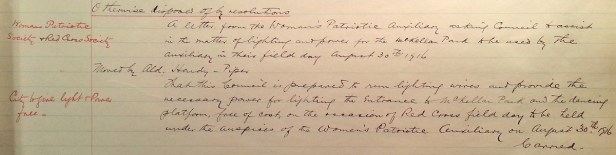 Otherwise disposed of by resolutions
Womens Patriotic
Society & Red Cross Society
A letter from the Women's Patriotic Auxiliary asking Council to assist
in the matter of lighting and power for the McKellar Park to be used by the
auxiliary in their field day August 30th 1916
Moved by Ald. Hardy - Piper
City to give light & Power
free -
That this Council is prepared to run lighting wires and provide the
necessary power for lighting the entrance to McKellar Park and the dancing
platform, free of cost, on the occasion of Red Cross field day to be held
under the auspices of the Women's Patriotic Auxiliary on August 30th 1916
Carried.